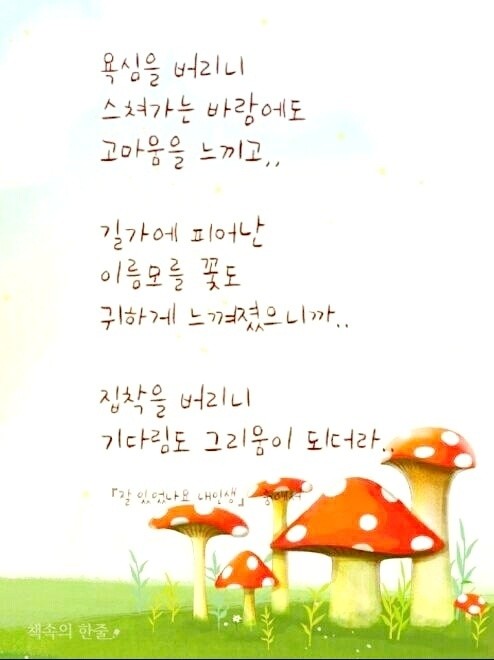 욕심을 버리니
스쳐가는 바람에도
고마움을 느끼고,,
길가에 피어난
이름모를 꽃도
귀하게 느껴졌으니까..
집착을 버리니
기다림도 그리움이 되더라..
『잘 있었나요 내인생』
책속의 한줄